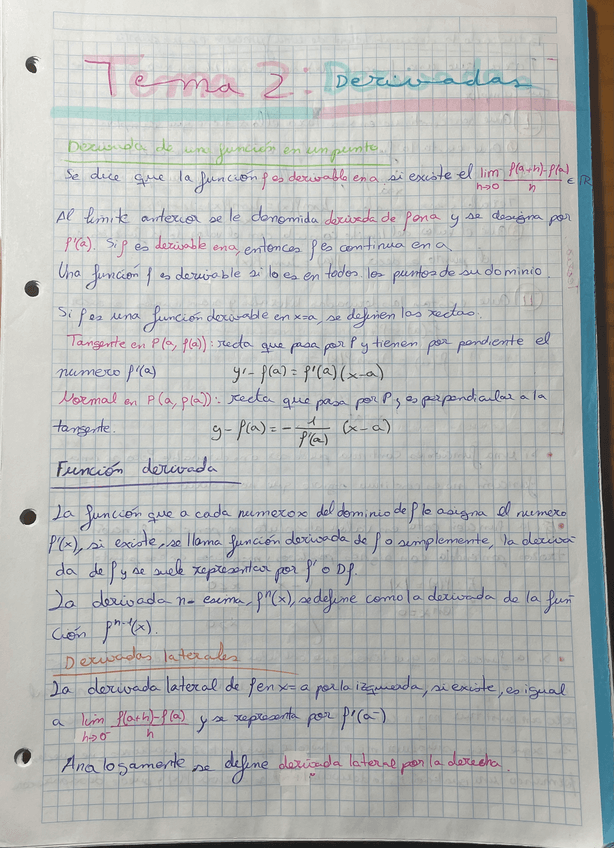 Tema 2: Derivadas
Derivada de una función en un punto
Se dice que la función f es derivable en a si existe el lim h→0 f(a+h)-f(a)/h ∈ ℝ
Al limite anterior se le denomida derivada de f en a y se designa por
f'(a). Si f es derivable en a, entonces f es continua en a
Una función f es derivable si lo es en todos los puntos de su dominio.
Si f es una función derivable en x=a, se definen las rectas.
Tangente en P(a, f(a)): recta que pasa por P y tienen por pendiente el
numero f'(a) y - f(a) = f'(a) (x-a)
Normal en P(a, f(a)): recta que pasa por P y es perpendicular a la
tangente. y - f(a) = - 1/f'(a) (x-a)
Función derivada
La función que a cada numero x del dominio de f le asigna el numero
f'(x), si existe, se llama función derivada de f o simplemente, la deriva-
da de f y se suele representar por f' o Df.
La derivada n-esima, fⁿ(x), se define como la derivada de la fun-
ción fⁿ⁻¹(x).
Derivadas laterales
La derivada lateral de f en x=a por la izquierda, si existe, es igual
a lim h→0⁻ f(a+h)-f(a)/h y se representa por f'(a⁻)
Analogamente se define derivada lateral por la derecha.